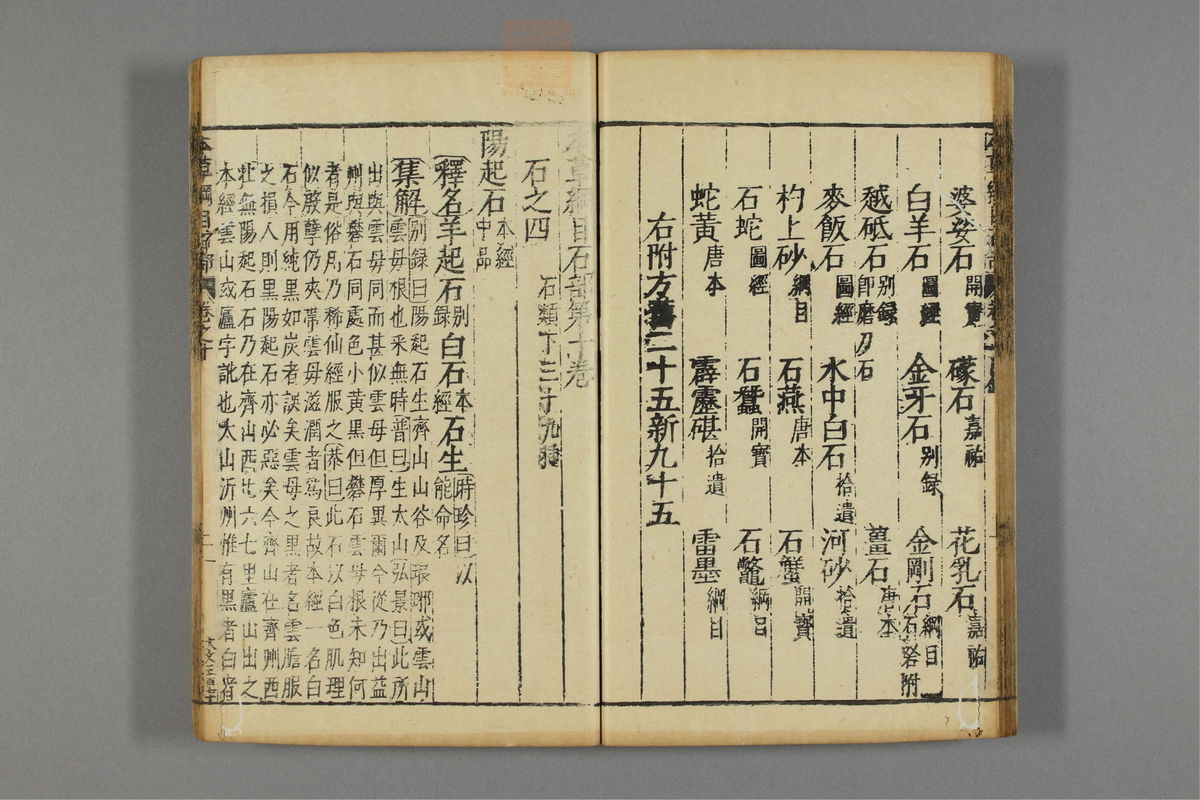 婆娑石開寶 礞石嘉祐 花乳石嘉祐
白羊石圖經 金牙石别録 金剛石綱目石砮附
越砥石别録即磨刀石 薑石唐本
麥飯石圖經 水中白石拾遺 河砂拾遺
杓上砂綱目 石燕唐本 石蟹開寶
石蛇圖經 石蠶開寶 石鼈綱目
蛇黃唐本 霹靂碪拾遺 雷墨綱目
右附方舊二十五新九十五
本草綱目石部第十卷
石之四 石類下三十九種
陽起石本經中品
釋名羊起石别録白石本經石生時珍曰以能命名
集解别録曰陽起石生齊山山谷及琅琊或雲山
雲母根也采無時普曰生太山弘景曰此所
出與雲母同而甚似雲母但厚異爾今從乃出益
州與礬石同處色小黃黑但礬石雲母根未知何
者是俗用乃稀仙經服之恭曰此石以白色肌理
似殷孽仍夾帶雲母滋潤者爲良故本經一名白
石今用純黑如炭者誤矣雲母之黑者名雲膽服
之損人則黑陽起石亦必惡矣今齊山在齊州西
北無陽起石石乃在齊山西北六七里盧山出之
本經雲山或盧字訛也太山沂州惟有黑者白者